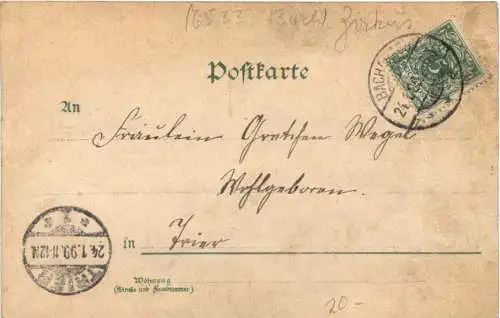 16533 Bach Zirkus
Postkarte
BACH
24
An
Fräulein Gretchen Wegel
Wohlgeboren.
in Trier
TRIER
24.1.99.11-12V.
Wohnung
(Straße und Hausnummer)
20-